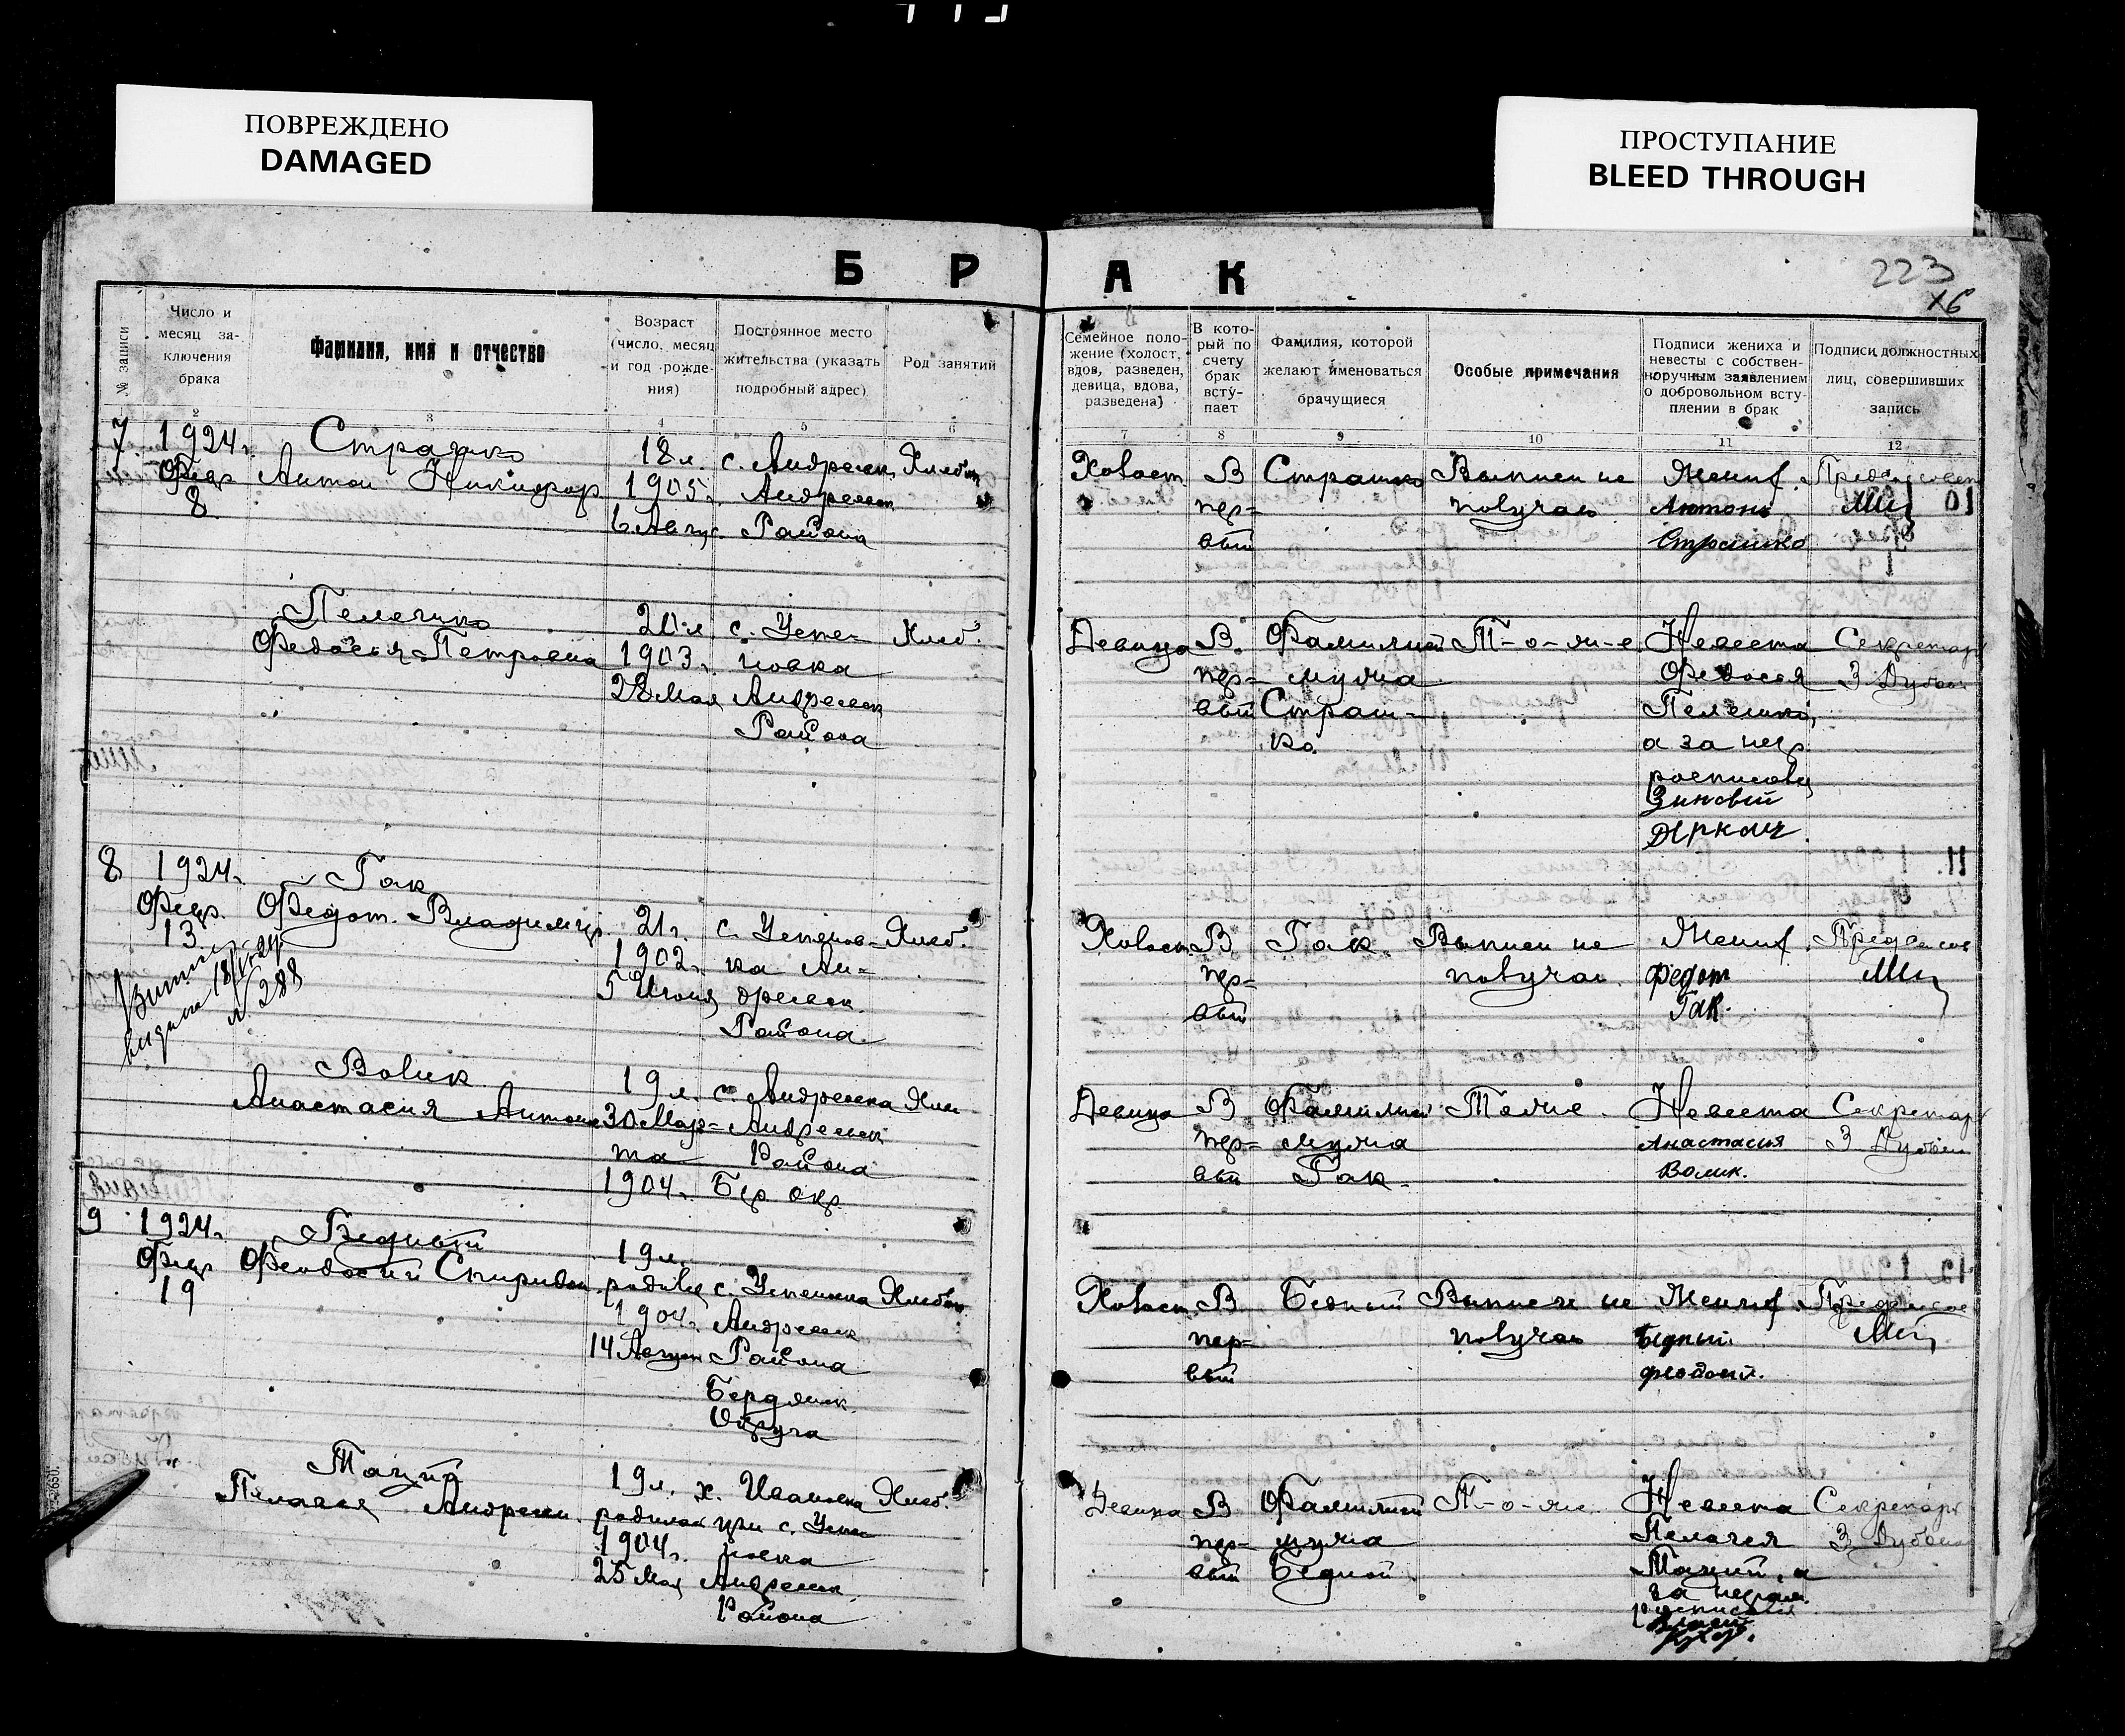 ПОВРЕЖДЕНО
DAMAGED
ПРОСТУПАНИЕ
BLEED THROUGH
Б Р А К
223
№ записи
Число и месяц за-
ключения
брака
Фамилия, имя и отчество
Возраст
(число, месяц
и год рожде-
ния)
Постоянное место
жительства (указать
подробный адрес)
Род занятий
Семейное поло-
жение (холост,
вдов, разведен,
девица, вдова,
разведена)
В кото-
рый по
счету
брак
всту-
пает
Фамилия, которой
желают именоваться
брачущиеся
Особые примечания
Подписи жениха и
невесты с собствен-
норучным заявлением
о добровольном всту-
плении в брак
Подписи должностных
лиц, совершивших
запись
2 3 4 5 6 7 8 9 10 11 12
7
1924 г.
Февр
8
Страшко
Антон Никифор
18 л.
1905 г.
6 Авгус.
с. Андреевк
Андреевск
Района
Холост
В
пер-
вый
Страшко
Выписи не
получал
Жених
Антонъ
Страшко
Пелешко
Федосья Петровна
20 л
1903 г.
28 Мая
с. Успе-
новка
Андреевск
Района
Хлеб.
Девица
В
пер-
вый
Фамилий
мужа
Страш-
ко
Т-о-ж-е
Невеста
Федосся
Пелешко,
а за негр
росписався
Зиновый
Деркач
Секретарь
З Дубов
8
1924 г.
Февр.
13
18/V-24
N 288
Гак
Федот Владимир
21 г.
1902 г.
5 Июня
с. Успенов-
ка Ан-
дреевск
Района
Хлеб.
Холост
В
пер-
вый
Гак
Выписи не
получал
Жених
Федот
Гак.
Волик
Анастасия Антон
19 л.
30 Мар-
та
1904 г.
с. Андреевка
Андреевск
Района
Бер окр
Девица
В
пер-
вый
Фамилий
мужа
Гак
Тоже
Невеста
Анастасия
Волик.
Секретарь
З Дубов
9
1924 г.
Февр
19
Бедный
Феодосий Спиридон
19 л.
родивс
1904 г.
14 Август
с. Успеновка
Андреевск
Района
Бердянск
Округа
Холост
В
пер-
вый
Бедный
Выписи не
получал
Жених
Бедный
Феодосий.
Мацый
Пелагея Андреев.
19 л.
родилась
1904 г.
25 Мая
х. Ивановка
при с. Успе-
новка
Андреевск
Района
Хлеб.
Девица
В
пер-
вый
Фамилий
мужа
Бедной
Т-о-же
Невеста
Пелагея
Секретарь
З Дубов